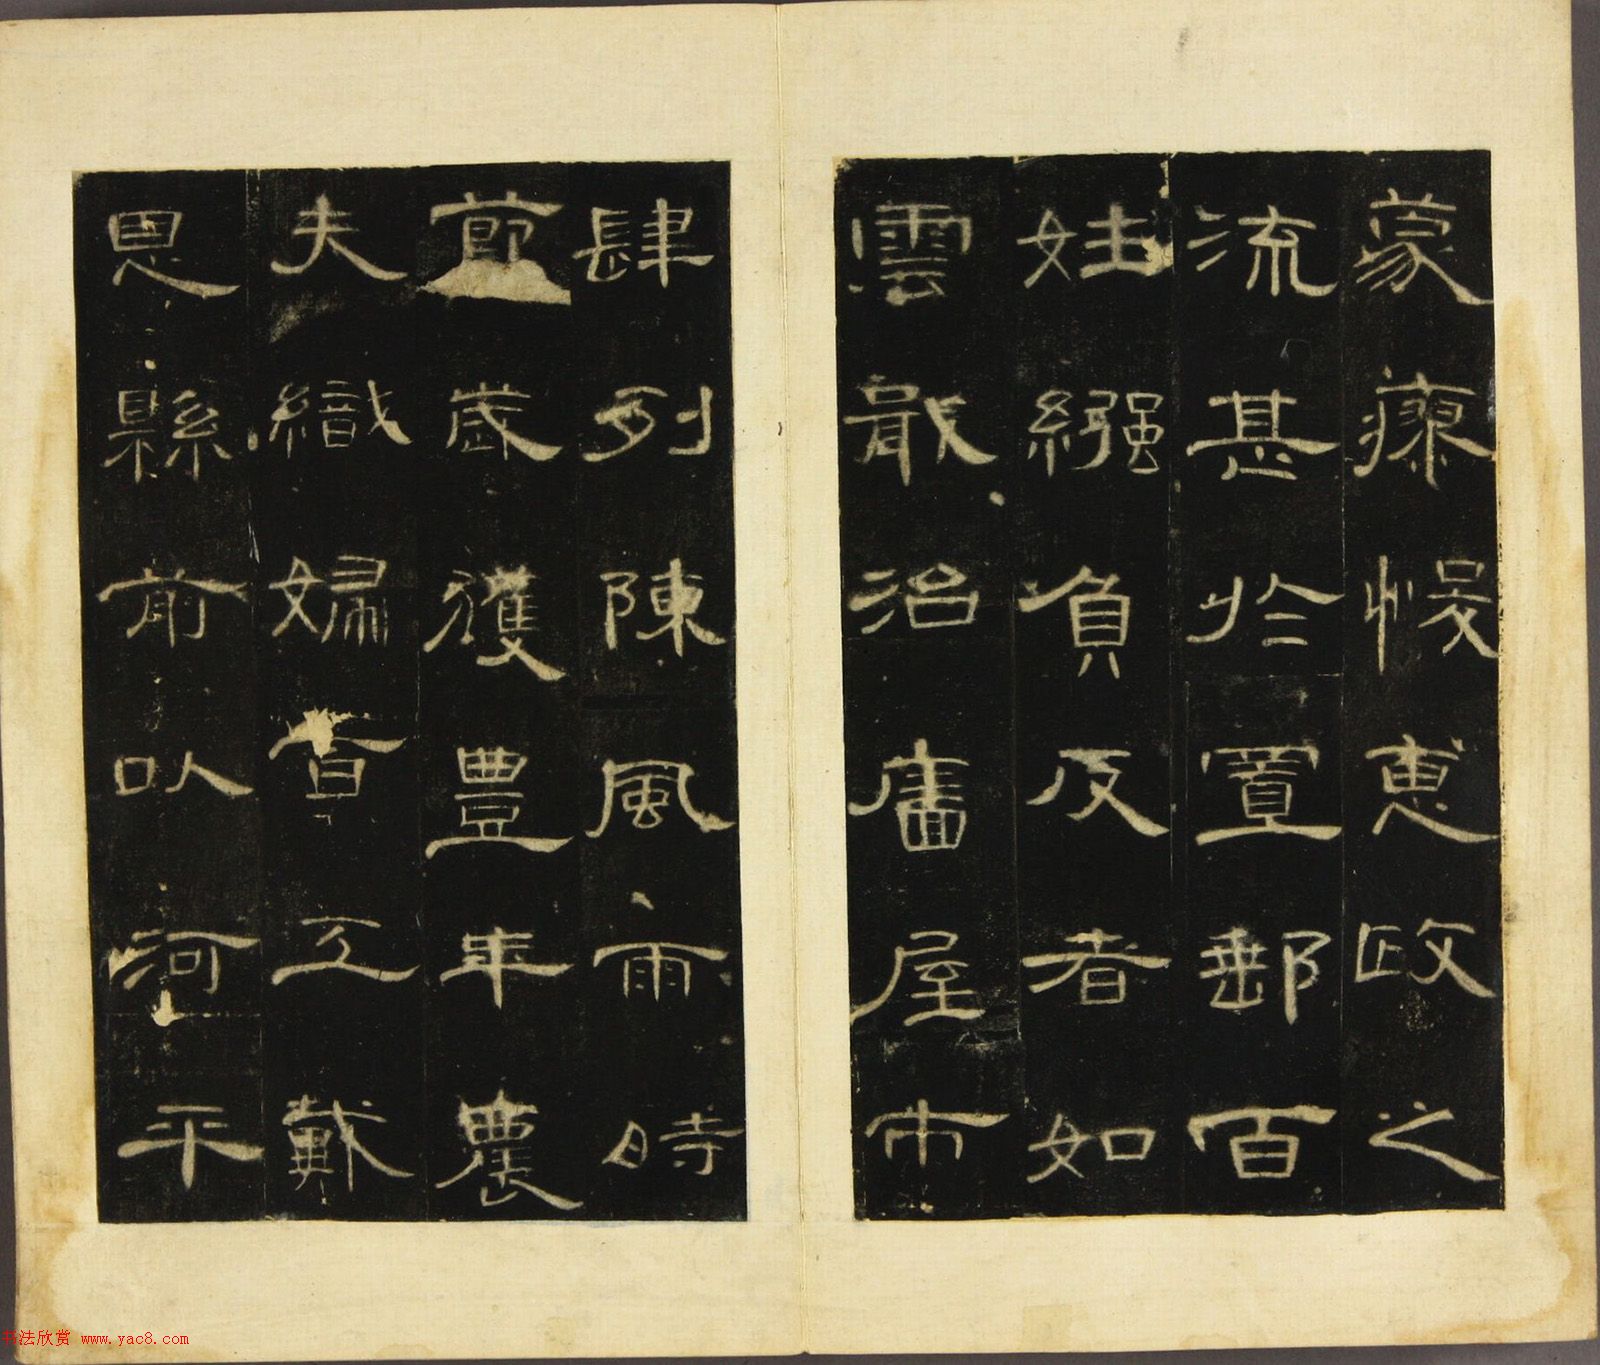 蒙瘳悮惠政之
流甚於置郵百
姓繦負反者如
雲戢治廧屋市
肆列陳風雨時
節歲獲豐年農
夫織婦百工戴
恩縣前以河平
书法欣赏 www.yac8.com